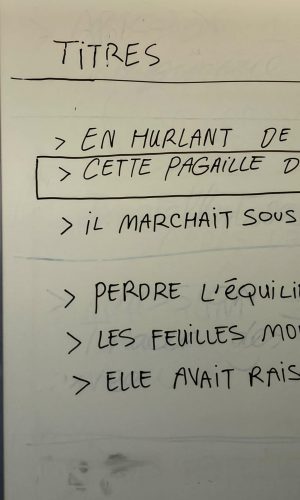 TITRES
> EN HURLANT DE
> CETTE PAGAILLE D
> iL MARCHAIT SOUS
> PERDRE L'ÉQUILI
> LES FEUILLES MO
> ELLE AVAIT RAIS